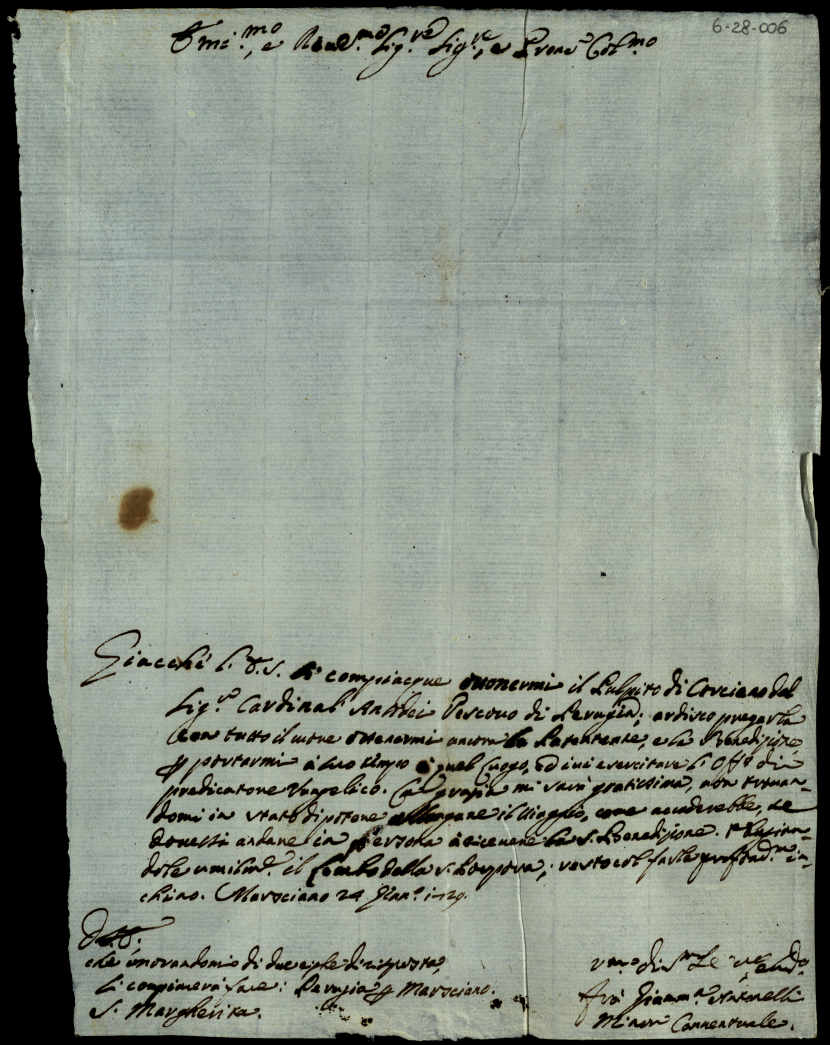 6-28-006
Emi.mo, e Rev.mo Sig.re Sig.re, e Prone Col.mo
Giacchè l' E. S. si compiacque ottenermi il Pulpito di Corciano dal
Sig.r Cardinal Ansidei Vescovo di Perugia; ardisco pregarla
con tutto il cuore ottenermi ancora la Patentente, e la Benedizione
p portarmi à suo tempo à quel luogo, ed ivi esercitare l' Off.o di
predicatore Vangelico. Tal grazia mi sarà gratissima, non trovan-
domi in stato di potere allungare il viaggio, come accaderebbe, se
dovessi andare in persona à ricevere la S. Benedizione. E baciando-
dole umilm.e il Lembo della S. Porpora, resto col farle profond.mo in-
chino. Marsciano 24 Genn.o 1729.
D. E. V.
che onorandomi di due righe di risposta,
si compiacerà fare: Perugia p Marsciano.
S. Margherita.
Um.o Ser.e
Fra Giamm.a
Minor Conventuale.